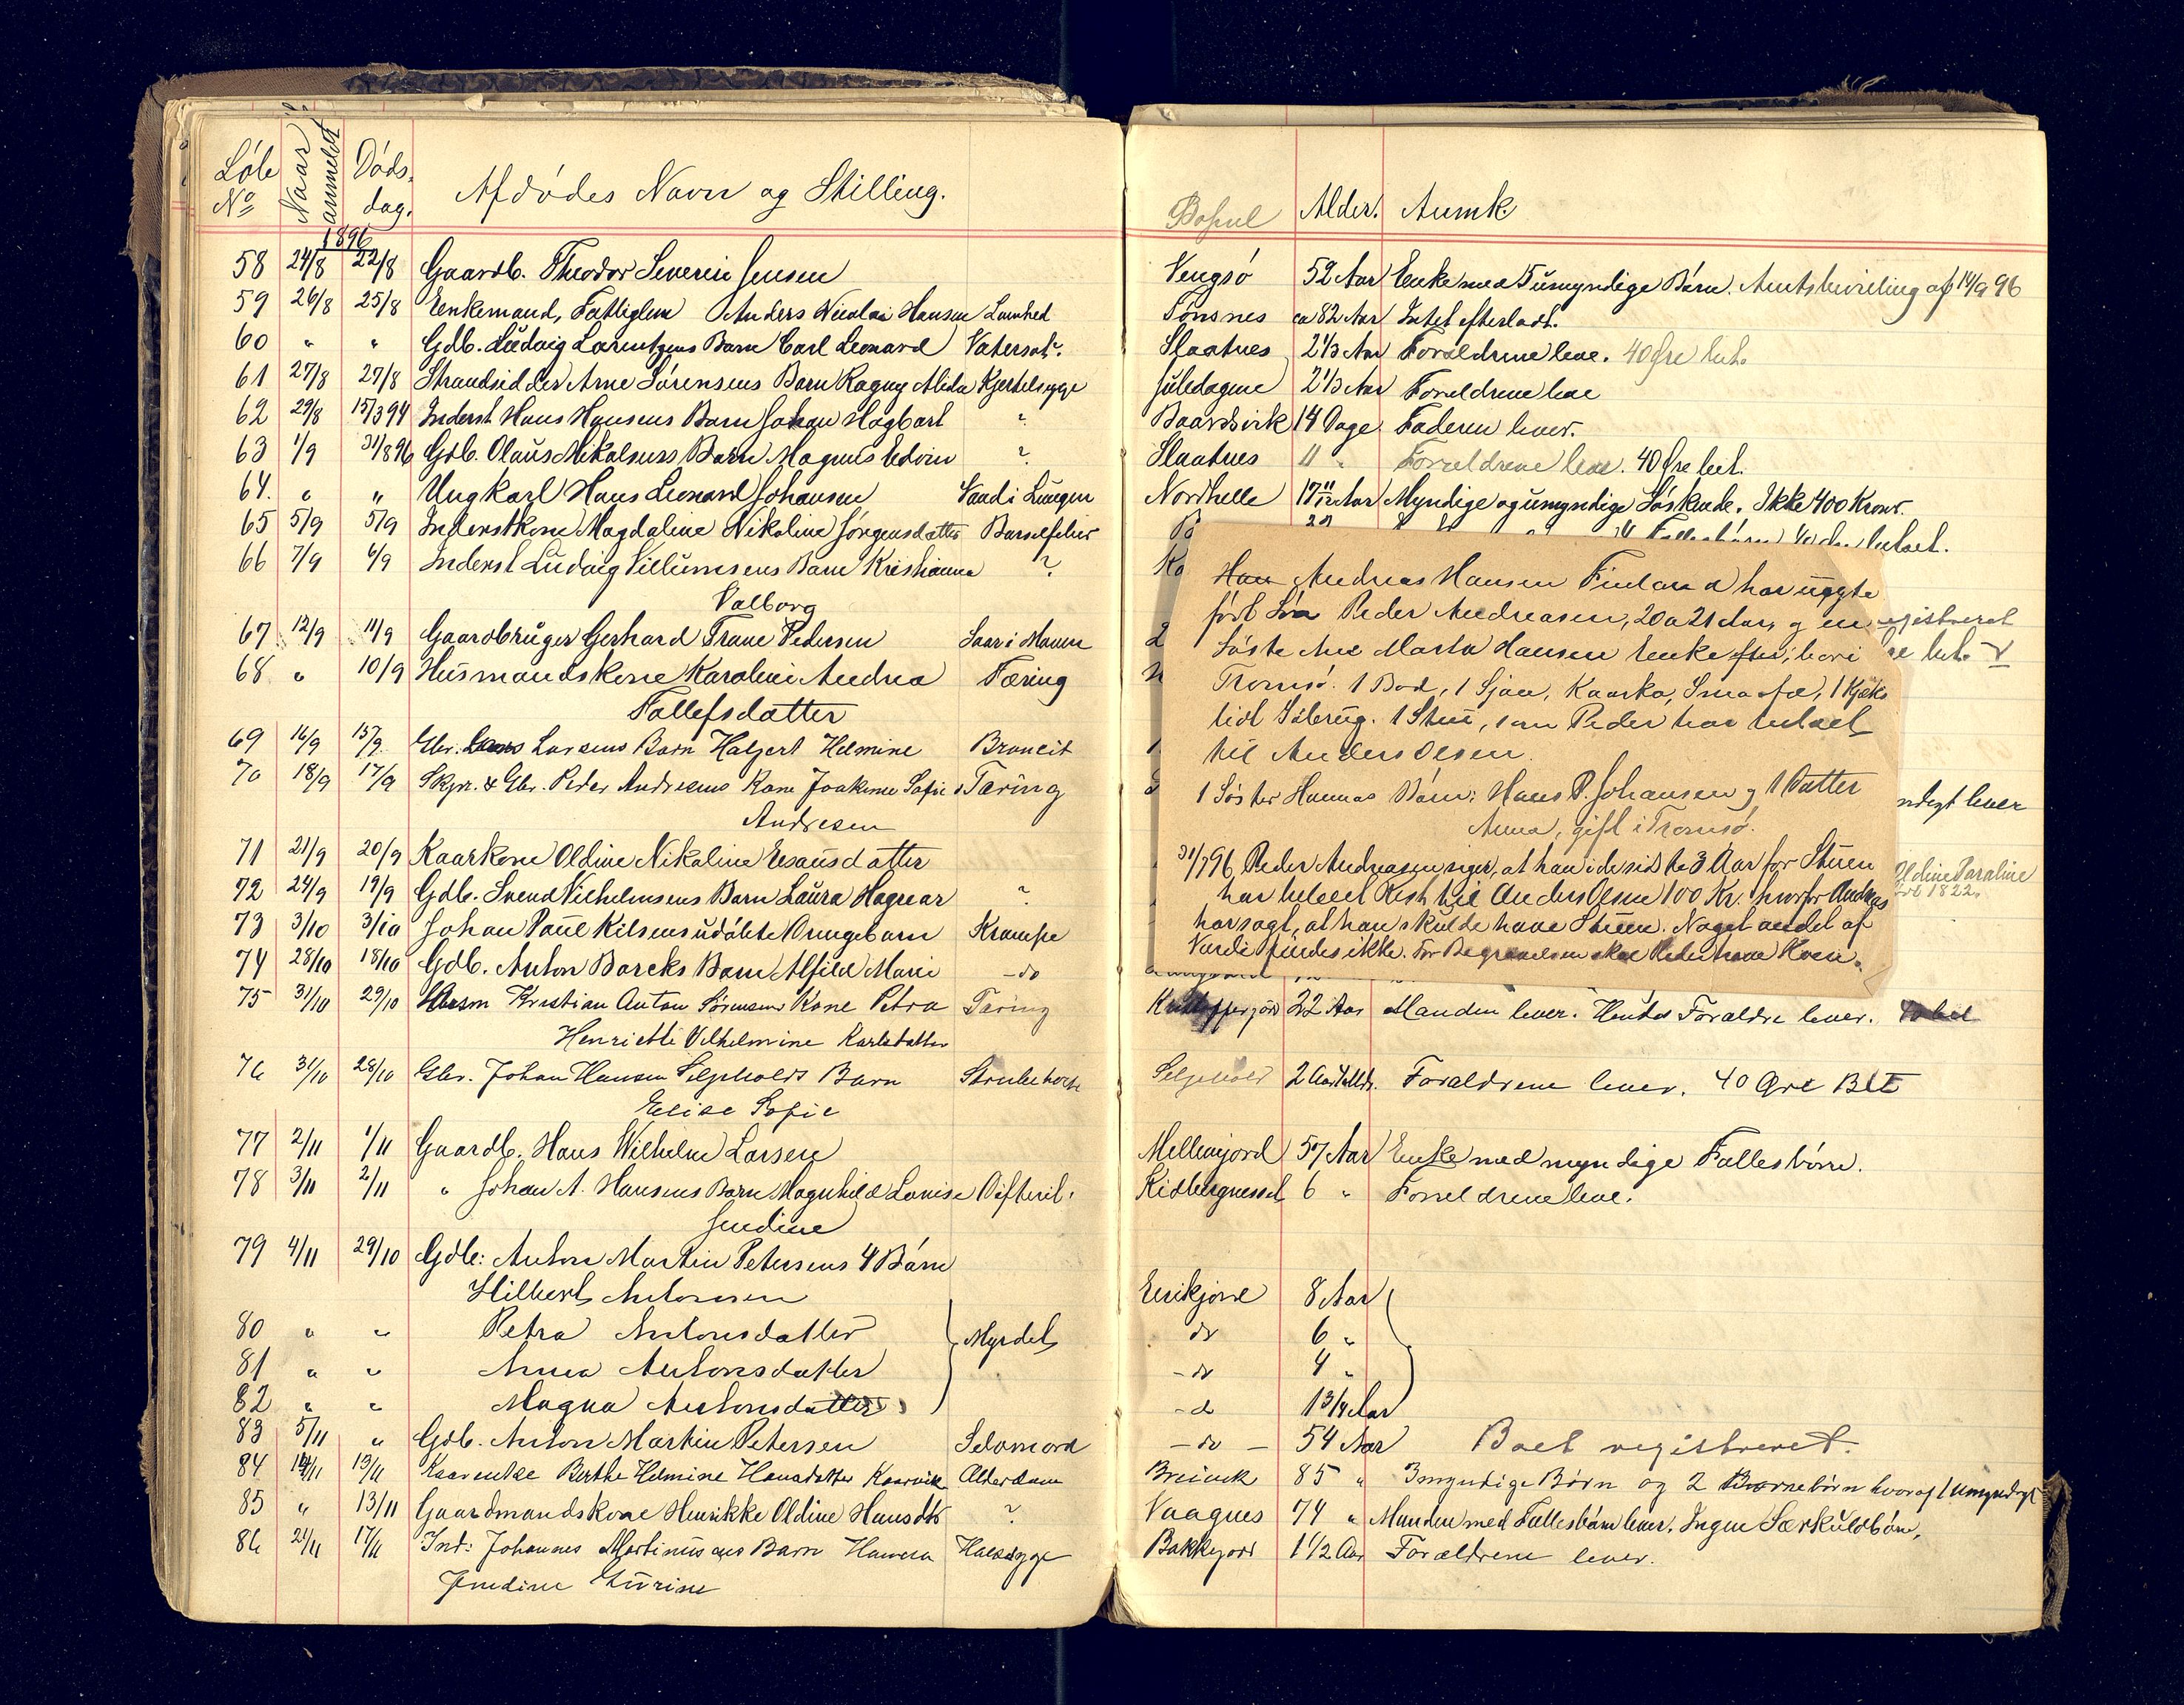 Löbe No Naar anmeldt Döds. dag. Afdödes Navn og Stilling.
1896
58 24/8 22/8 Gaardb. Theodor Severin Jensen
59 26/8 25/8 Enkemand, Fattiglem Anders Nicolai Hansen
60 " " Gdb. Ludvig Lorentzens Barn Carl Leonard Vatersot.
61 27/8 27/8 Strandsidder Arne Sörensens Barn Ragna Alida Kjertelsyge
62 29/8 15/3 94 Inderst Hans Hansens Barn Johan Hagbart ?
63 1/9 31/8 96 Gdb. Olaus Mikalsens Barn Magnus Edvin ?
64. " " Ungkarl Hans Leonard Johansen Vand i Lungen
65 5/9 5/9 Inderstkone Magdaline Nikoline Jörgensdatter Barselfeber
66 7/9 6/9 Inderst Ludvig Villumsens Barn Kristianna ?
Valborg
67 12/9 11/9 Gaardbruger Gerhard Trane Pedersen Saar i Maven
68 " 10/9 Husmandskone Karoline Andrea Tæring
Tollefsdatter
69 16/9 15/9 Gbr. Larsens Barn Halgert Helmine Broncit
70 18/9 17/9 Skpr. & Gbr. Peder Andresens Kone Joakime Sofie Tæring
Andresen
71 21/9 20/9 Kaarkone Oldine Nikoline Esausdatter
72 24/9 19/9 Gdb. Svend Vilhelmsens Barn Laura Hagnar ?
73 3/10 3/10 Johan Paul Kilsens udöbte Drengebarn Krampe
74 28/10 18/10 Gdb. Anton Barcks Barn Alfild Marie - do
75 31/10 29/10 Husm Kristian Anton Sörensens Kone Petra Tæring
Henriette Vilhelmine Karlsdatter
76 31/10 28/10 Gbr. Johan Hansen Seljeholds Barn Strubehoste
Elise Sofie
77 2/11 1/11 Gaardb. Hans Wilhelm Larsen
78 3/11 2/11 " Johan A. Hansens Barn Magnhild Lovise Difterit.
Jendine
79 4/11 29/10 Gdb: Anton Martin Petersens 4 Börn
Hilbert Antonsen
80 " " Petra Antonsdatter Myrdet
81 " " Anna Antonsdatter
82 " " Magna Antonsdatter
83 5/11 " Gdb. Anton Martin Petersen Selvmord
84 14/11 13/11 Kaarenke Berthe Helmine Hansdatter Kaarvik Alderdom
85 " 13/11 Gaardmandskone Henrikke Oldine Hansdtr ?
86 21/11 17/11 Ind: Johannes Martinussens Barn Hanna Halssyge
Jendine Lurine
Bopæl Alder. Anmk
Vengsö 52 Aar Enke med 5 umyndige Börn. Amtsbevilling af 14/9 96
Tönsnes ca 82 Aar Intet efterladt.
Slaatnes 2 1/3 Aar Forældrene leve. 40 Öre bet.
Juledagene 2 1/3 Aar Forældrene leve
Baardsvik 14 Dage Faderen lever.
Slaatnes 11 " Forældrene leve. 40 Öre bet.
Nordhelle 17 11/12 Aar Myndige og umyndige Söskende. Ikke 400 Kroner.
Han Andreas Hansen Finland har uægte
född Sön Peder Andreasen, 20 a 21 Aar, og en
Söster Ane Marta Hansen Enke efter, bor i
Tromsö. 1 Bod, 1 Sjaa, Kaarko, Smaafæ, 1 Kjæks
lidt Söbrug. 1 Stue, som Peder har betalt
til Anders Olsen.
1 Söster Hannas Börn: Hans P. Johansen og 1 Datter
Anna, gift i Tromsö.
31/7 96 Peder Andreasen siger, at han i de sidste 3 Aar for Stuen
har betalt Rest til Anders Olsen 100 Kr. hvorfor Andreas
har sagt, at han skulde have Stuen. Noget andet af
Værdi findes ikke. For Begravelsen skal Peder have Koen.
registreret
bet.
ndigt lever
Oldine Paroline
1822.
22 Aar Manden lever. Hendes Forældre lever.
Seljehold 2 Aar Forældrene lever. 40 Öre Bet
Mellemjord 57 Aar Enke med myndige Fællesbörn.
Kidbergnesset 6 " Forældrene leve.
Erikjord 8 Aar
do 6 "
- do 4 "
- do 1 3/4 Aar
- do - 54 Aar Boet registreret.
Breivik 85 " 3 myndige Börn og 2 Barnebörn hvoraf 1 umyndigt
Vaagnes 74 " Manden med Fællesbörn lever. Ingen Særkuldbörn.
Bakkejord 1 1/2 Aar Forældrene lever.